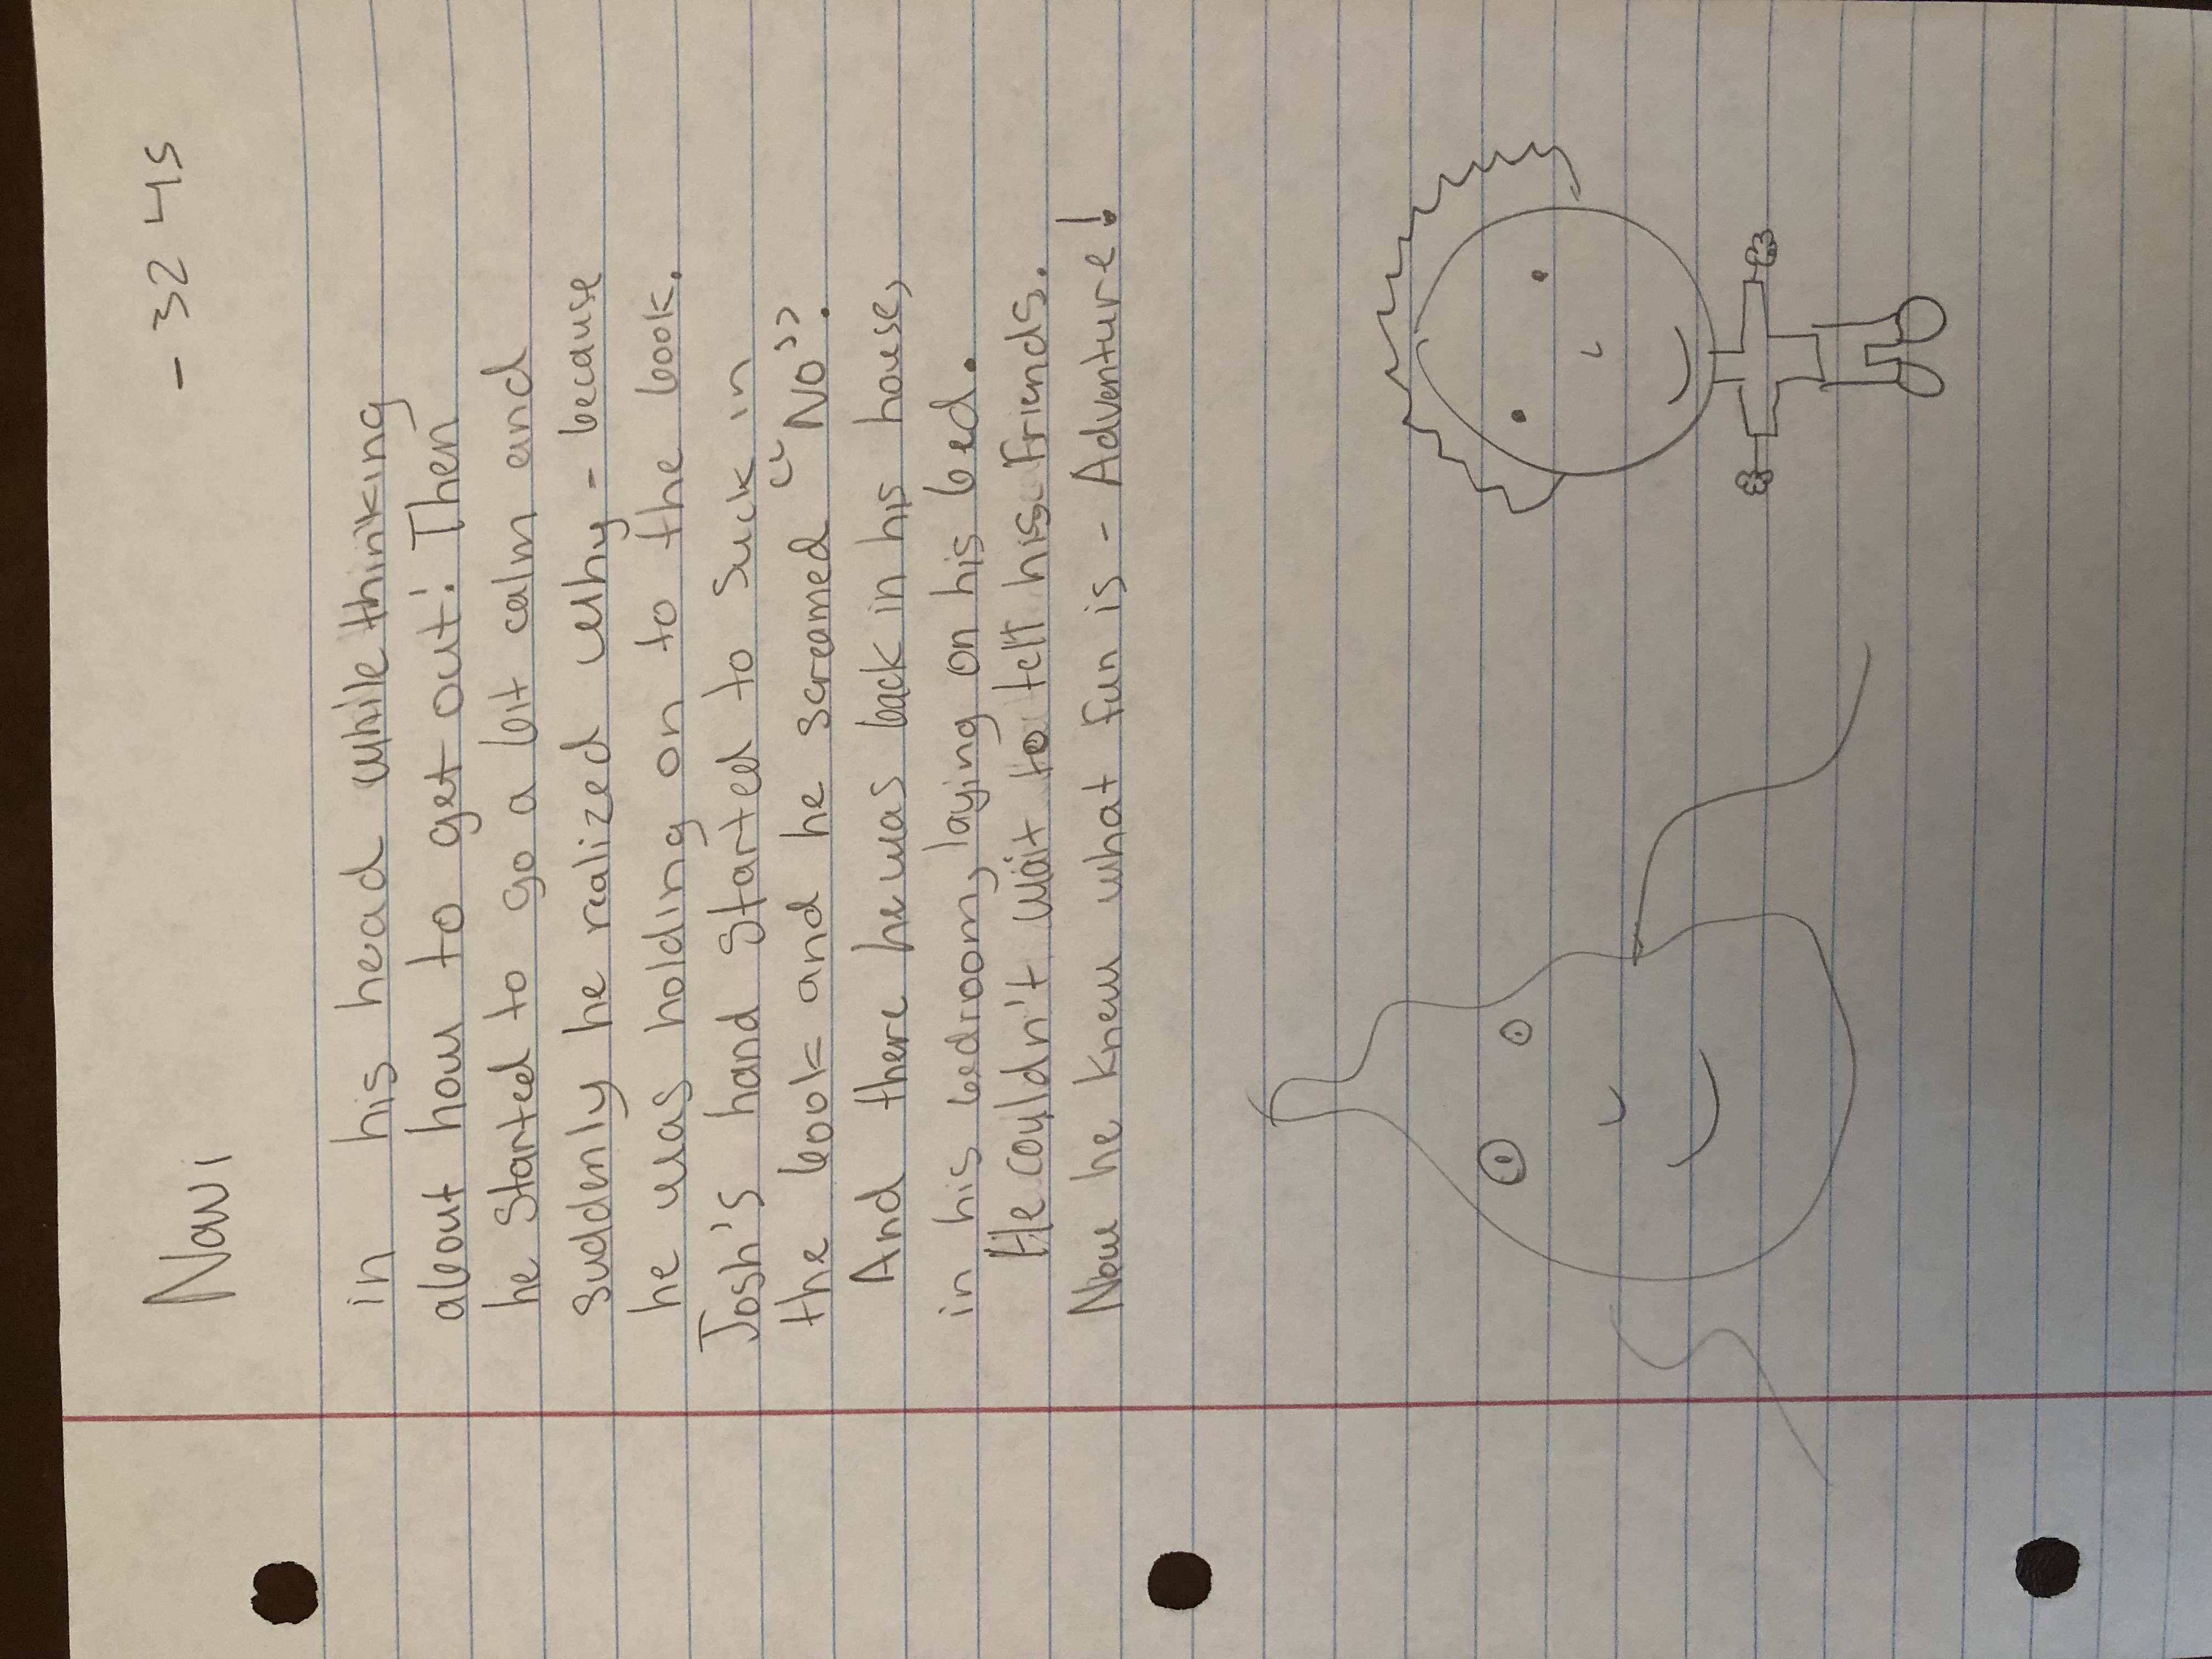 Navi - 3245
in his head while thinking
about how to get out! Then
he Started to go a bit calm and
suddenly he realized why - because
he was holding on to the book.
Josh's hand Started to Suck in
the book and he screamed "No".
And there he was back in his house,
in his bedroom, laying on his bed.
He couldn't wait to tell his Friends.
Now he knew what fun is - Adventure!